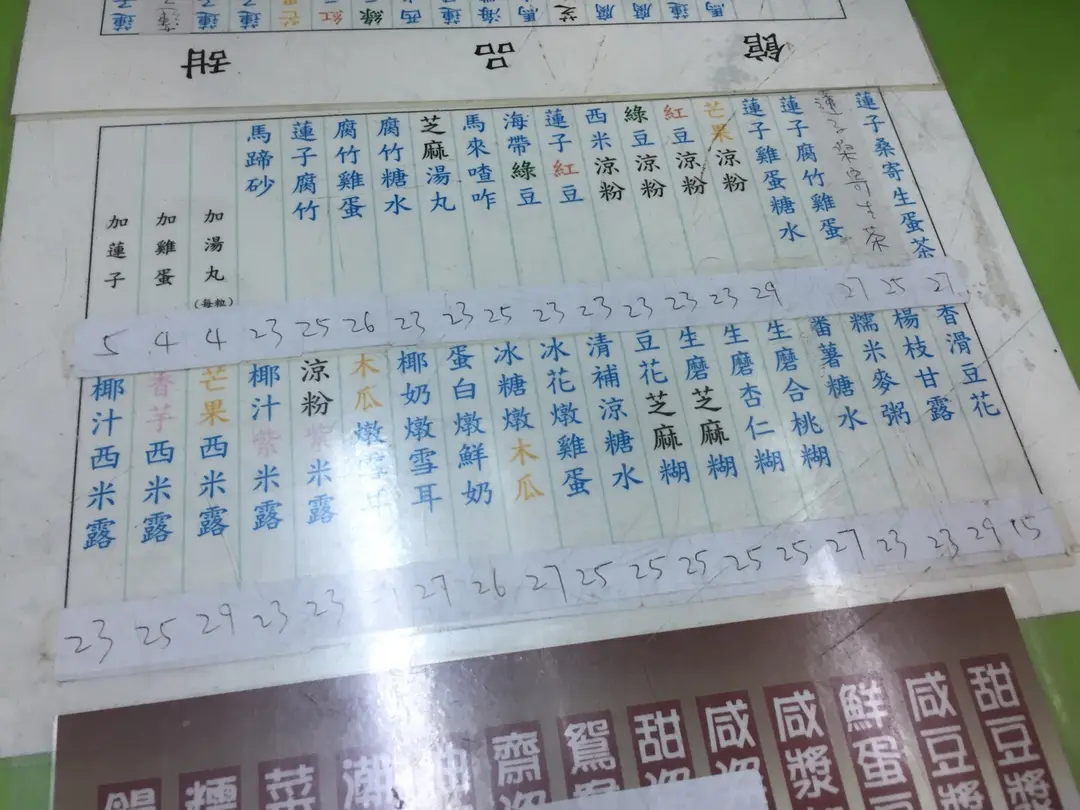 甜品館
蓮子桑寄生蛋茶
蓮子桑寄生茶
蓮子腐竹雞蛋
蓮子雞蛋糖水
芒果涼粉
紅豆涼粉
綠豆涼粉
西米涼粉
蓮子紅豆
海帶綠豆
馬來喳咋
芝麻湯丸
腐竹糖水
腐竹雞蛋
蓮子腐竹
馬蹄砂
加湯丸(每粒)
加雞蛋
加蓮子
5 4 4 23 25 26 23 23 25 23 23 23 23 23 29 27 25 27
香滑豆花
楊枝甘露
糯米麥粥
番薯糖水
生磨合桃糊
生磨杏仁糊
生磨芝麻糊
豆花芝麻糊
清補涼糖水
冰花燉雞蛋
冰糖燉木瓜
蛋白燉鮮奶
椰奶燉雪耳
木瓜燉雪耳
涼粉紫米露
椰汁紫米露
芒果西米露
香芋西米露
椰汁西米露
23 25 29 23 23 27 26 27 25 25 25 25 25 27 23 23 29 15
甜豆漿
咸豆漿
鮮蛋
咸漿
咸
甜
鴛
齋
潮
菜